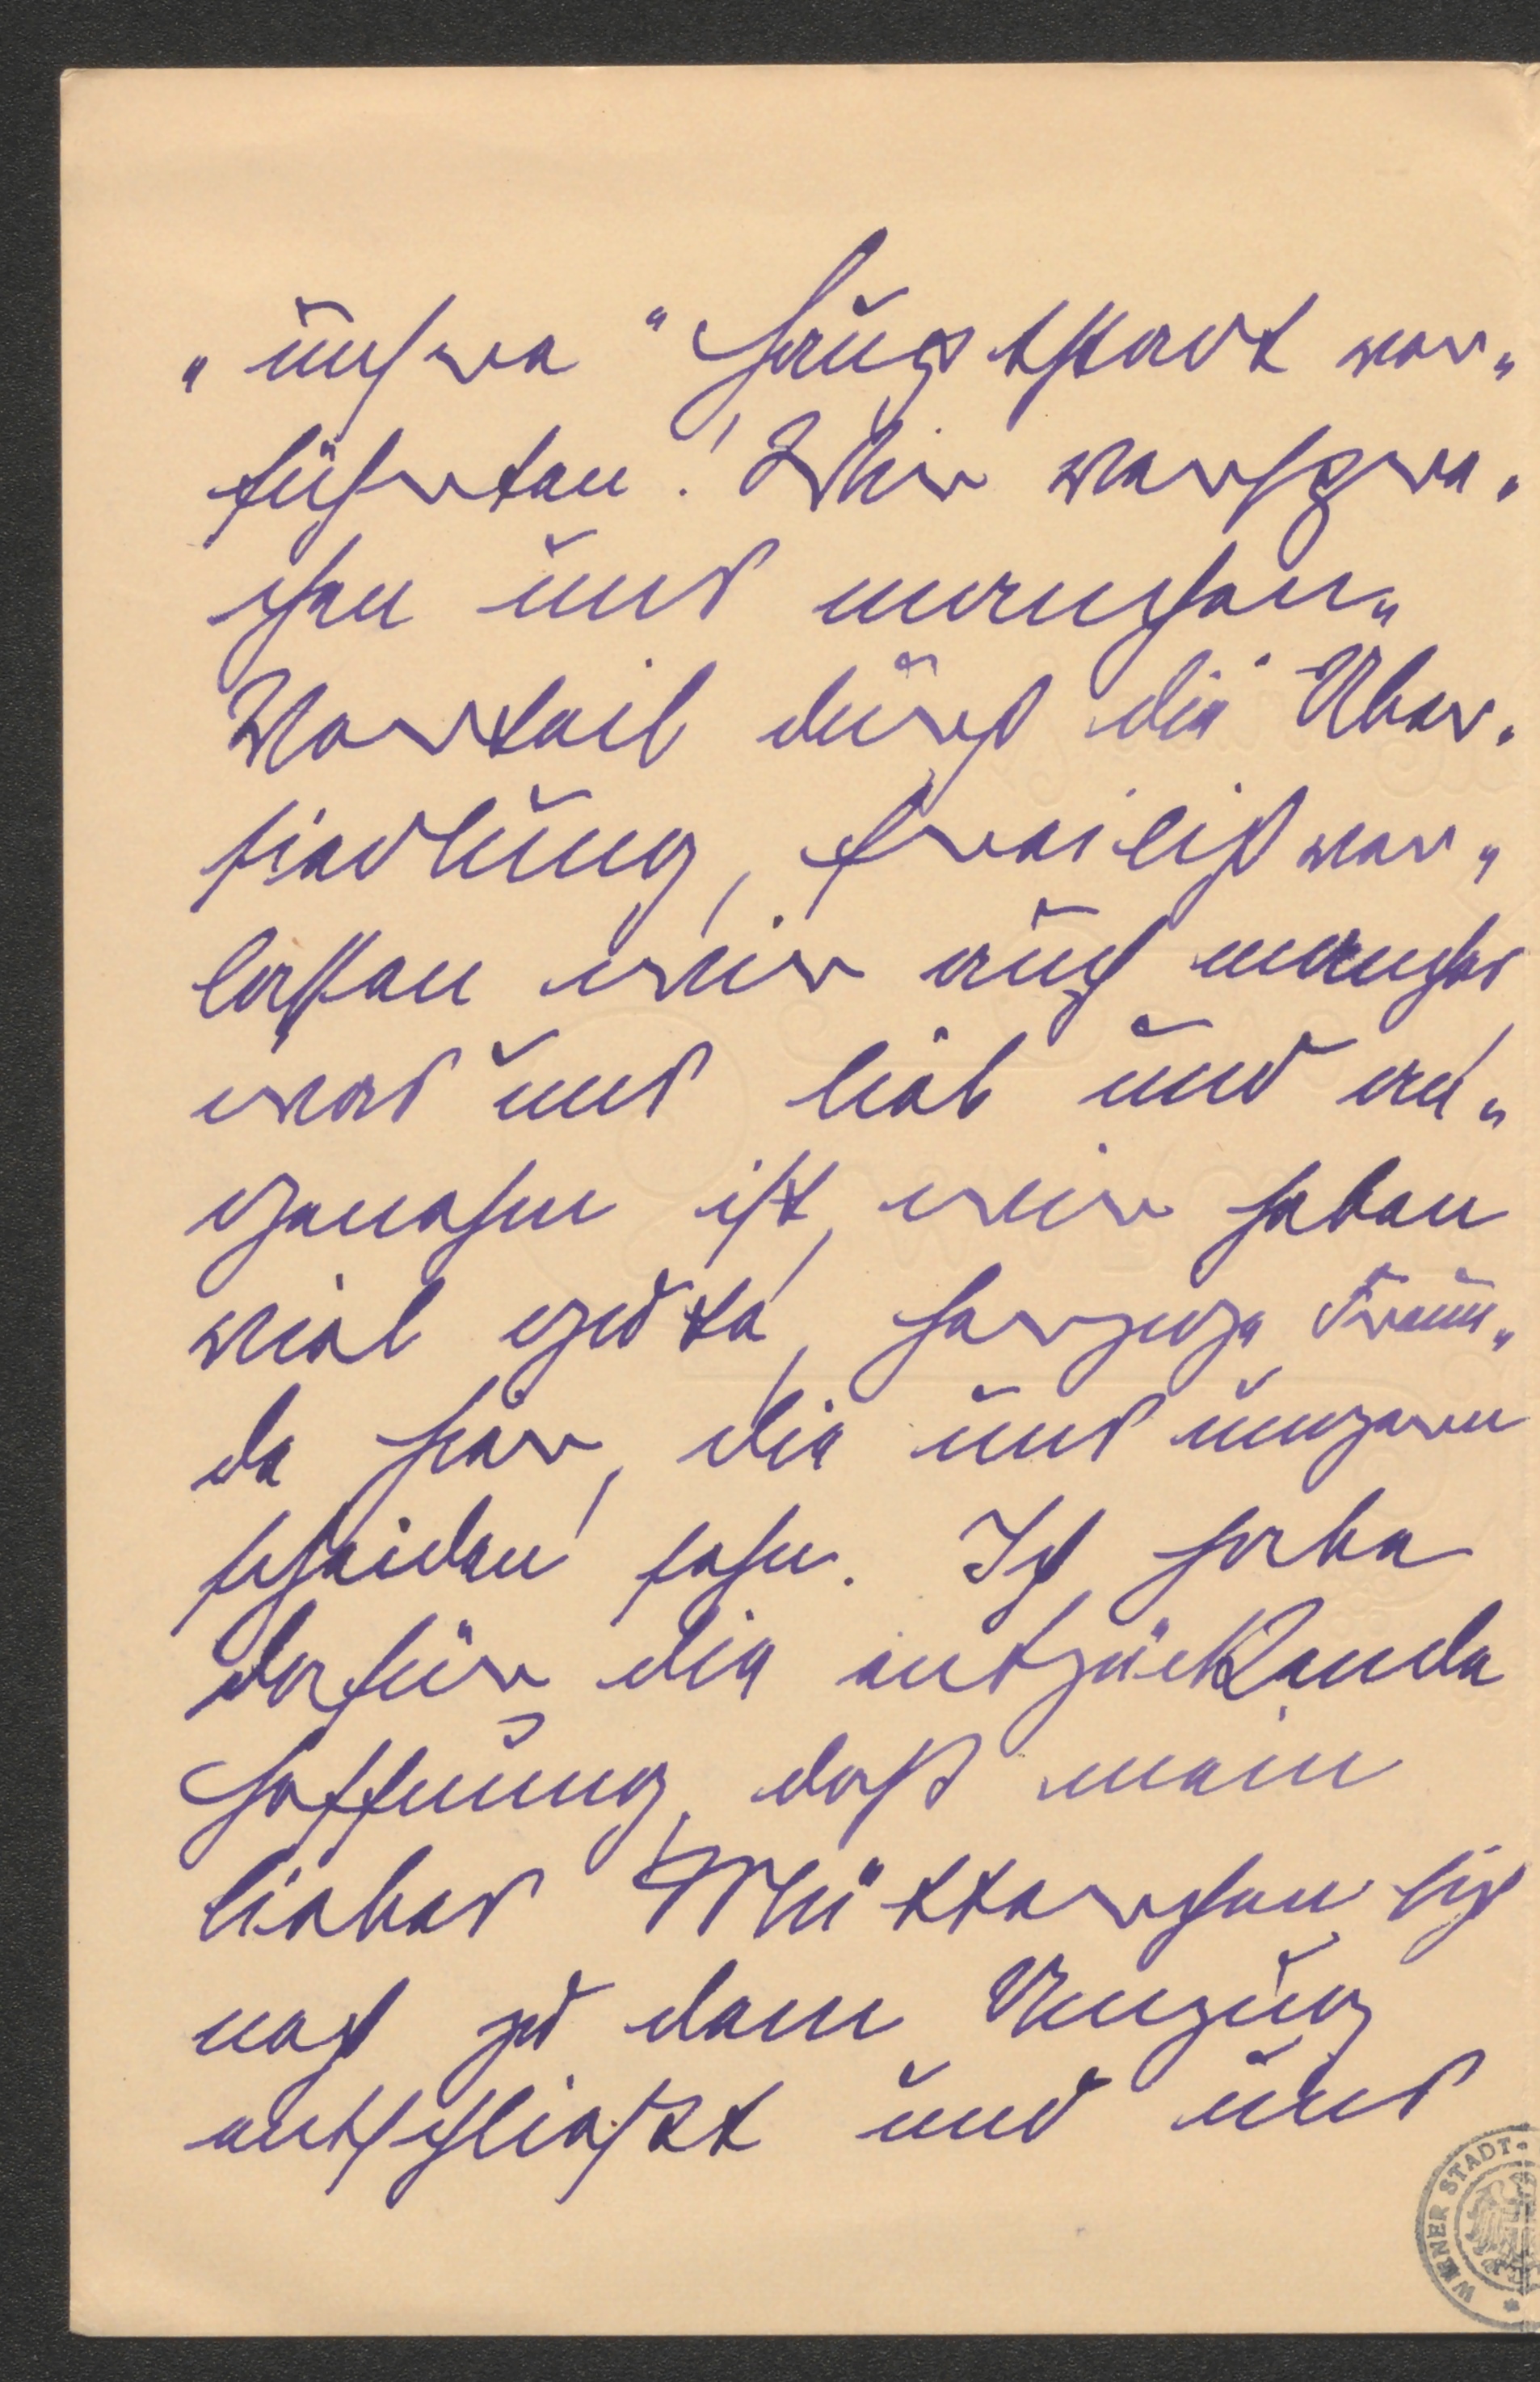 „unsre" Hauptstadt ver„
führten! Wir verspre„
chen uns manchen„
Vorteil durch die Über„
siedlung, freilich ver„
lassen wir auch manches
was uns lieb und an„
genehm ist, wir haben
viel gute, herzige Freun„
de hier, die uns ungern
scheiden sehn. Ich habe
dafür die entzückende
Hoffnung, daß mein
liebes Mütterchen sich
noch zu dem Umzug
entschließt und uns
WIENER STADT-